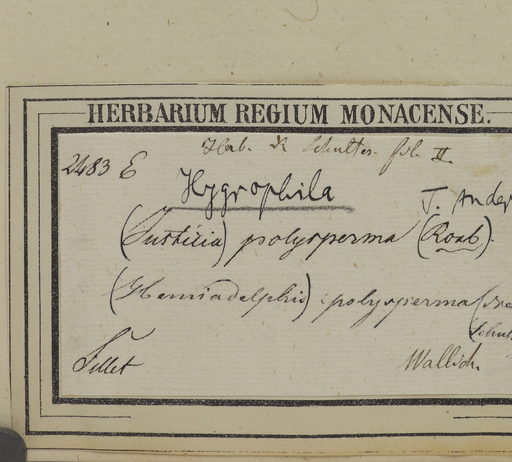 HERBARIUM REGIUM MONACENSE.
Hab. Schultes fil. II.
2483 E
Hygrophila T. Ander
(Justicia) polysperma (Roxb).
(Hemiadelphis) polysperma (Nee
Schult
Sillet Wallich.